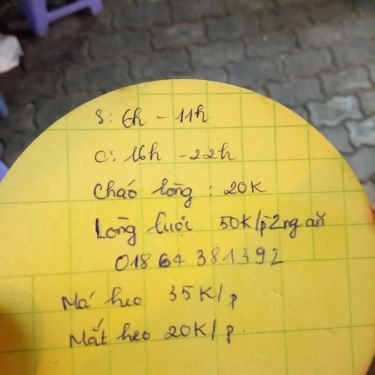 S: 6h - 11h
C: 16h - 22h
Cháo lòng : 20K
Lòng luộc 50K/p2ng ăn
0186 4 381392
Má heo 35K/p
Mắt heo 20K/p.